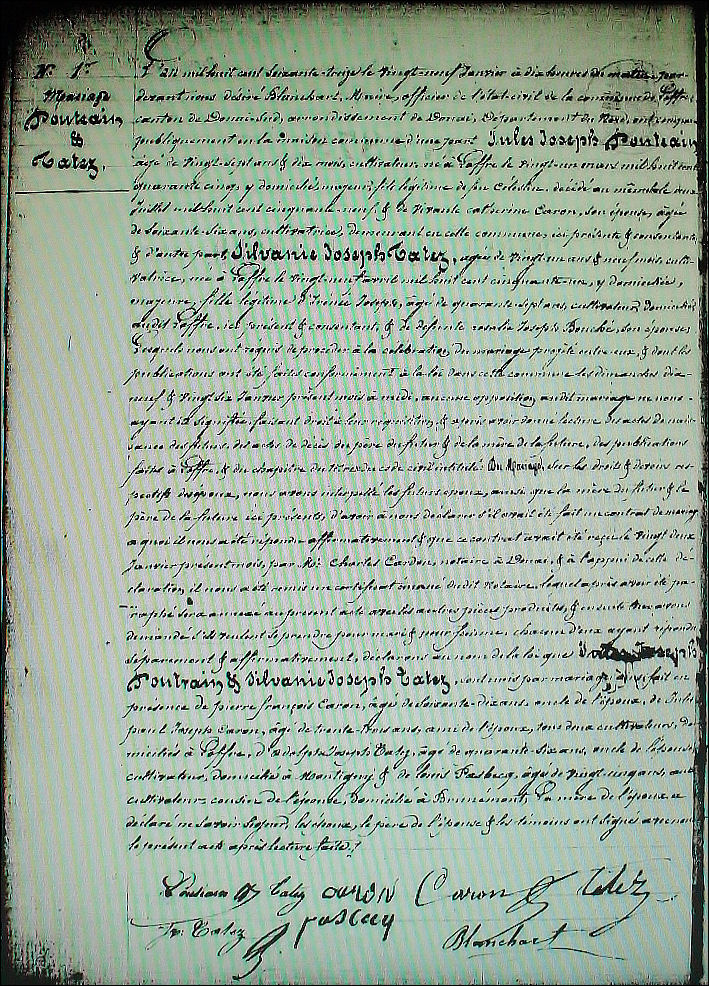 N.º 1er
Mariage
Poutrain
&
Tatez.
L'an mil huit cent soixante-treize le vingt-neuf Janvier à dix heures du matin, par
devant nous Désiré Blanchart, Maire, officier de l'état civil de la commune de Loffre
canton de Douai-Sud, arrondissement de Douai, Département du Nord, ont comparu
publiquement en la maison commune d'une part Jules Joseph Poutrain
âgé de vingt-sept ans & dix mois, cultivateur, né à Loffre le vingt-un mars mil huit cent
quarante cinq, y domicilié, majeur, fils légitime de feu Célestin, décédé au même lieu
Juillet mil huit cent cinquante-neuf, & de vivante Catherine Caron, son épouse, âgée
de soixante-six ans, cultivatrice, demeurant en cette commune, ici présente & consentante
& d'autre part Silvanie Joseph Tatez, âgée de vingt-un ans & neuf mois, culti-
vatrice, née à Loffre le vingt-neuf avril mil huit cent cinquante-un, y domiciliée,
majeure, fille légitime d'Irénée Joseph, âgé de quarante-sept ans, cultivateur, domicilié
audit Loffre, ici présent & consentant, & de défunte Rosalie Joseph Bouché, son épouse;
Lesquels nous ont requis de procéder à la célébration du mariage projeté entre eux, & dont les
publications ont été faites conformément à la loi dans cette commune les dimanches dix-
neuf & vingt six Janvier présent mois à midi, aucune opposition audit mariage ne nous
ayant été signifiée, faisant droit à leur réquisition, & après avoir donné lecture des actes de nais-
sance des futurs, des actes de décès du père du futur & de la mère de la future, des publications
faites à Loffre, & du chapitre du titre du code civil intitulé Du Mariage, sur les droits & devoirs res-
pectifs des époux, nous avons interpellé les futurs époux, ainsi que la mère du futur & le
père de la future ici présents, d'avoir à nous déclarer s'il avait été fait un contrat de mariage
a quoi il nous a été répondu affirmativement & que ce contrat avait été reçu le vingt deux
Janvier présent mois, par Me Charles Cardon, notaire à Douai, & à l'appui de cette dé-
claration, il nous a été remis un certificat émané dudit notaire, lequel après avoir été pa-
raphé sera annexé au présent acte avec les autres pièces produites, & ensuite nous avons
demandé s'ils veulent se prendre pour mari & pour femme, chacun d'eux ayant répondu
séparément & affirmativement, déclarons au nom de la loi que Jules Joseph
Poutrain & Silvanie Joseph Tatez, sont unis par mariage. Fait en
présence de pierre françois Caron, âgé de soixante-dix ans, oncle de l'époux, de Jules
paul Joseph Caron, âgé de trente-trois ans, ami de l'époux, tous deux cultivateurs, do-
miciliés à Loffre, d'Adolphe Joseph Tatez, âgé de quarante-six ans, oncle de l'épouse,
cultivateur, domicilié à Montigny & de Louis Pasbecq, âgé de vingt-cinq ans,
cultivateur cousin de l'épouse, domicilié à Brunémont. La mère de l'époux a
déclaré ne savoir signer, les époux, le père de l'épouse & les témoins ont signé avec nous
le présent acte après lecture faite.
Poutrain Tatez Caron Caron Tatez
Tatez Pasbecq Blanchart